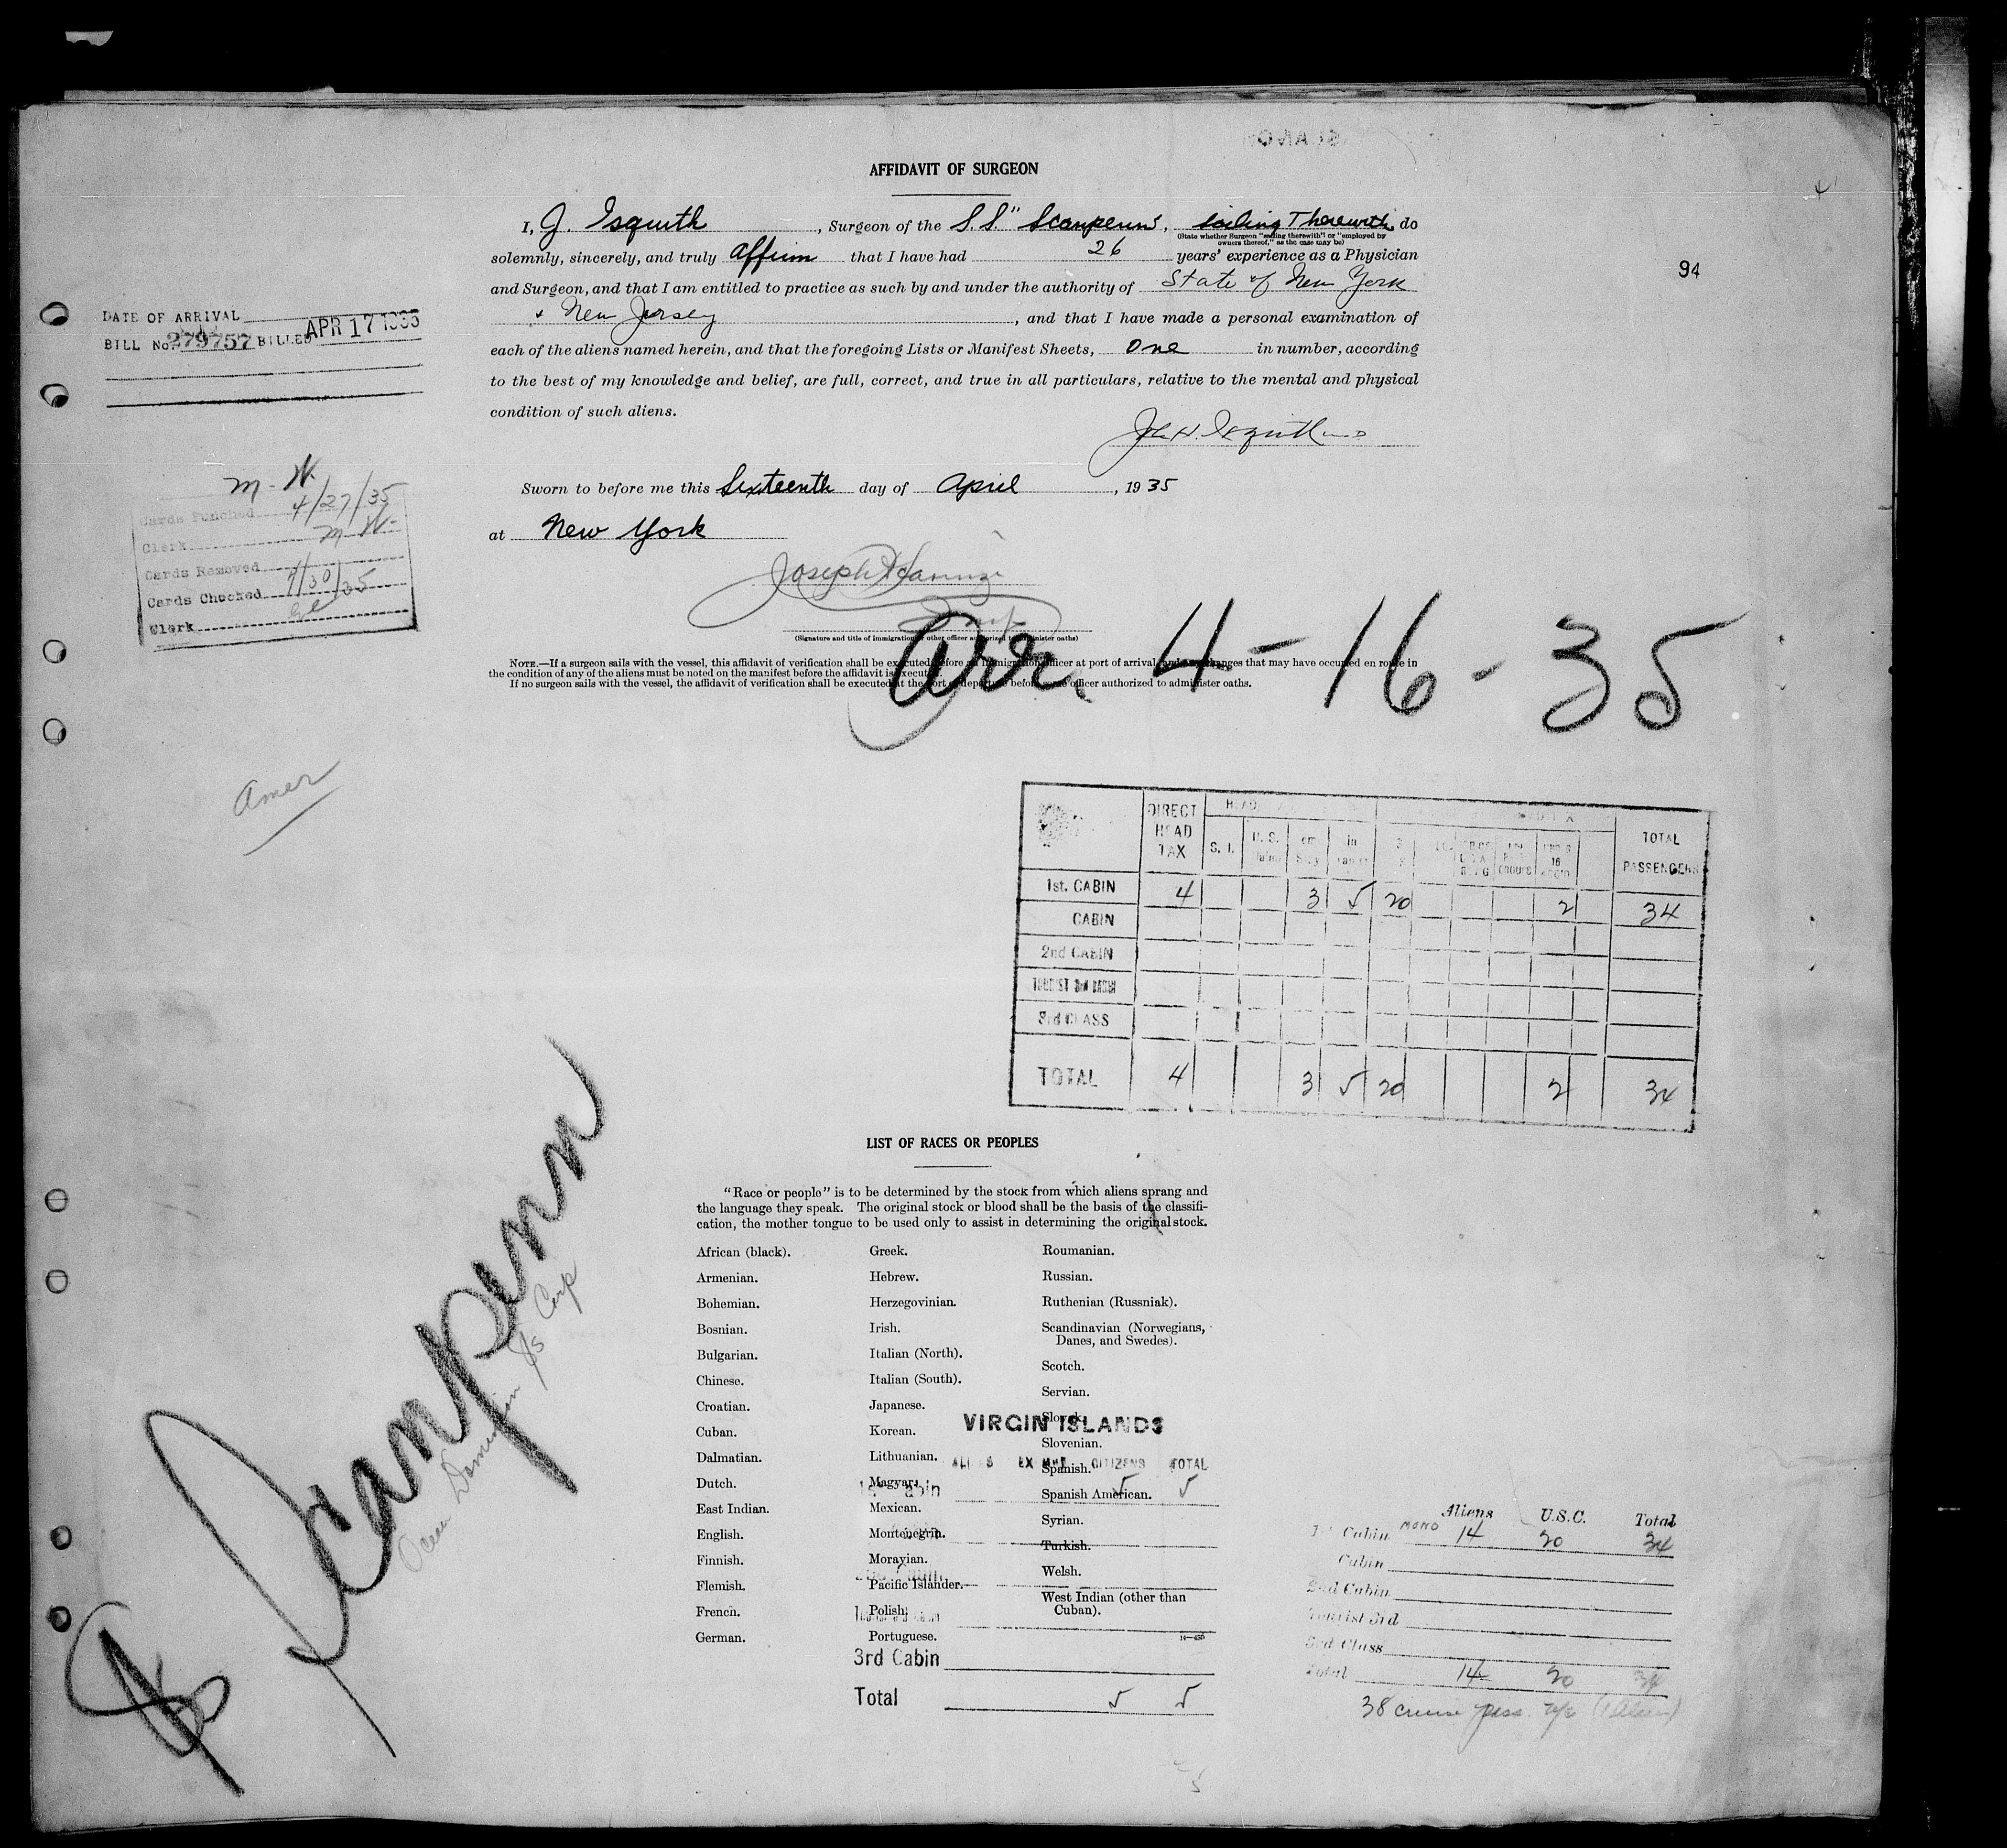 AFFIDAVIT OF SURGEON
I, J. Isquith, Surgeon of the S.S. "Scanpenn", sailing Therewith do
(State whether Surgeon "sailing therewith" or "employed by owners thereof," as the case may be)
solemnly, sincerely, and truly affirm that I have had 26 years' experience as a Physician
and Surgeon, and that I am entitled to practice as such by and under the authority of State of New York
& New Jersey, and that I have made a personal examination of
each of the aliens named herein, and that the foregoing Lists or Manifest Sheets, One in number, according
to the best of my knowledge and belief, are full, correct, and true in all particulars, relative to the mental and physical
condition of such aliens.
94
DATE OF ARRIVAL
BILL No. 279757 BILLED APR 17 1935
Sworn to before me this Sixteenth day of April, 1935
at New York
M-W.
Cards Punched 4/27/35
Clerk M W-
Cards Removed
Cards Checked 4/30/35
Clerk
(Signature and title of immigration or other officer authorized to administer oaths)
Arr. 4-16-35
NOTE.—If a surgeon sails with the vessel, this affidavit of verification shall be executed before an immigration officer at port of arrival, and any changes that may have occurred en route in
the condition of any of the aliens must be noted on the manifest before the affidavit is executed.
If no surgeon sails with the vessel, the affidavit of verification shall be executed at the port of departure before some officer authorized to administer oaths.
Amer
DIRECT HEAD TAX
HEAD
S. I.
U. S.
in
16
TOTAL PASSENGERS
1st. CABIN 4 3 5 20 2 34
CABIN
2nd CABIN
TOURIST 3rd CABIN
3rd CLASS
TOTAL 4 3 5 20 2 34
SS Scanpenn
LIST OF RACES OR PEOPLES
"Race or people" is to be determined by the stock from which aliens sprang and
the language they speak. The original stock or blood shall be the basis of the classifi-
cation, the mother tongue to be used only to assist in determining the original stock.
African (black).
Armenian.
Bohemian.
Bosnian.
Bulgarian.
Chinese.
Croatian.
Cuban.
Dalmatian.
Dutch.
East Indian.
English.
Finnish.
Flemish.
French.
German.
Greek.
Hebrew.
Herzegovinian.
Irish.
Italian (North).
Italian (South).
Japanese.
Korean.
Lithuanian.
Magyar.
Mexican.
Montenegrin.
Moravian.
Pacific Islander.
Polish.
Portuguese.
Roumanian.
Russian.
Ruthenian (Russniak).
Scandinavian (Norwegians,
Danes, and Swedes).
Scotch.
Servian.
Slovak.
Slovenian.
Spanish.
Spanish American.
Syrian.
Turkish.
Welsh.
West Indian (other than
Cuban).
VIRGIN ISLANDS
ALIENS EXEMPT CITIZENS TOTAL
1st Cabin 5 5
3rd Cabin
Total 5 5
Aliens U.S.C. Total
1st Cabin 14 20 34
Cabin
2nd Cabin
Tourist 3rd
3rd Class
Total 14 20 34
38 cruise pass.